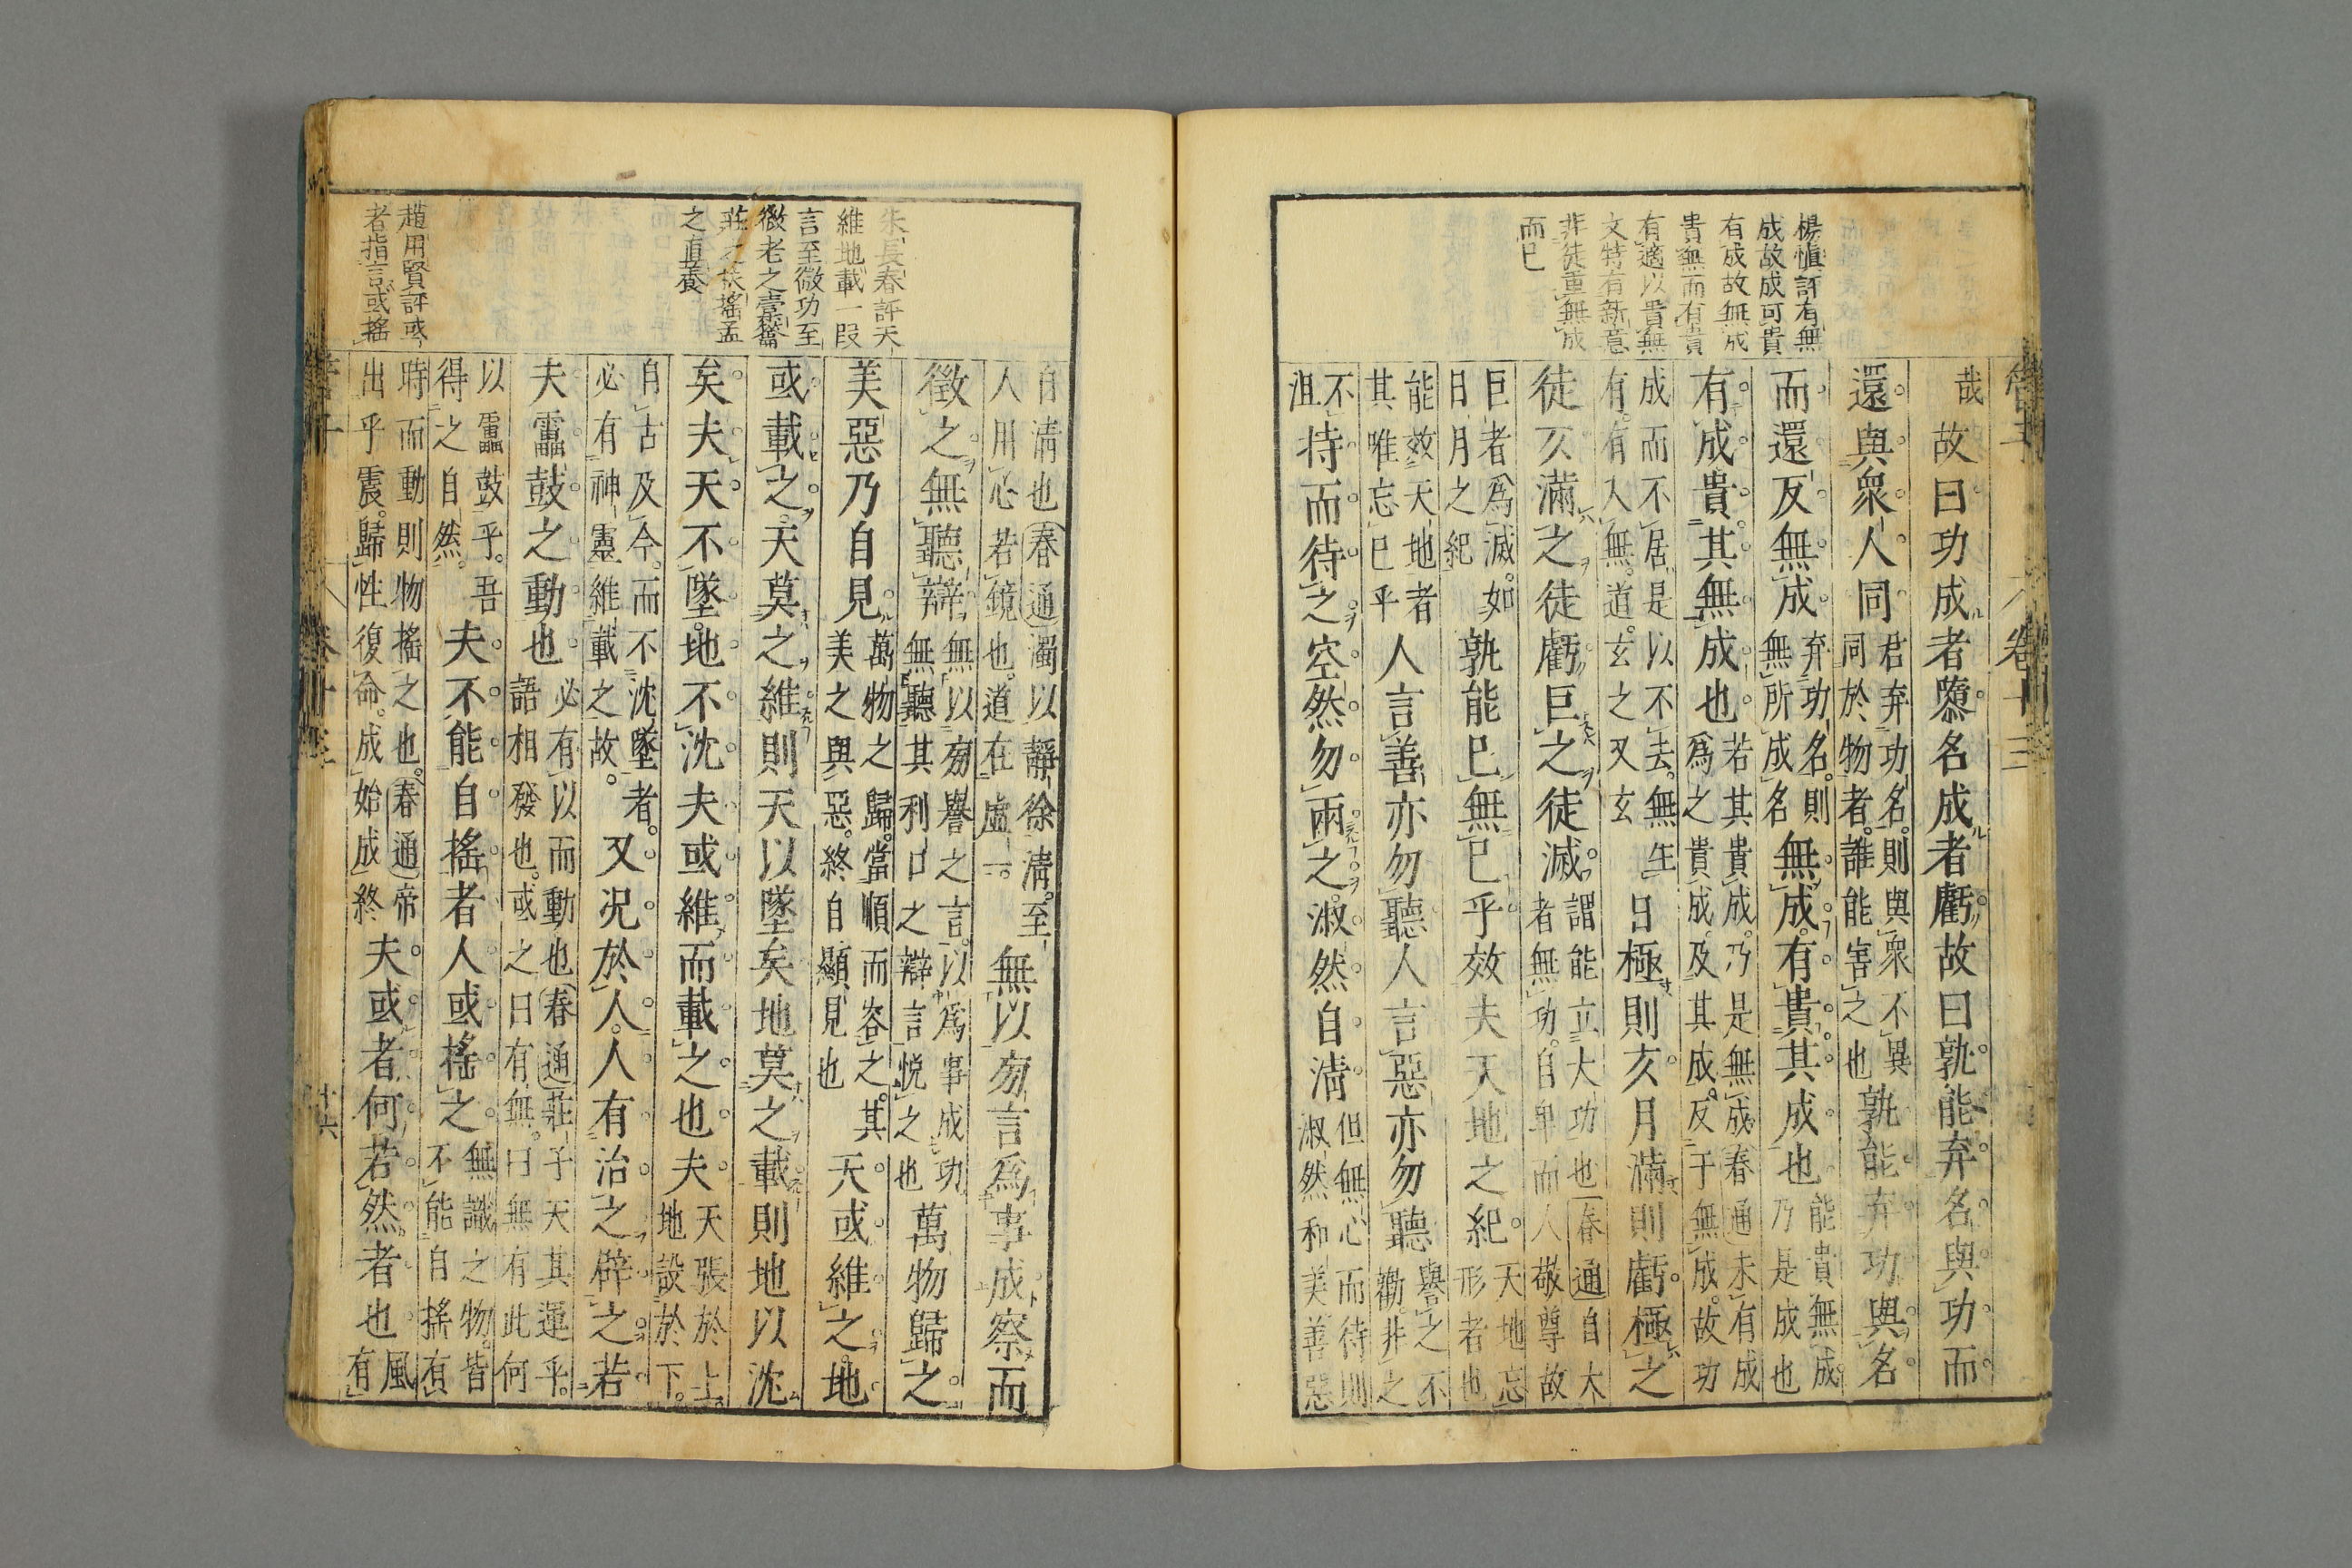 管子
卷十三
楊愼評有無
成故成可貴
有成故無成
貴無而有貴
有適以貴無
文特有新意
非徒重無成
而已
哉故曰功成者隳名成者虧故曰孰能弃名與功而
還與衆人同君弃功名則與衆不異
同於物者誰能害之也孰能弃功與名
而還反無成弃功名則
無所成名無成有貴其成也能貴無成
乃是成也
有成貴其無成也若其貴成乃是無成春通未有成
爲之貴成及其成反于無成故功
成而不居是以不去無生
有有入無道玄之又玄日極則亥月滿則虧極之
徒亥滿之徒虧巨之徒滅謂能立大功也春通自大
者無功自卑而人敬尊故
巨者爲滅如
日月之紀孰能已無已乎效夫天地之紀天地忘
形者也
能效天地者
其唯忘已乎人言善亦勿聽人言惡亦勿聽譽之不
勸非之
不
沮持而待之空然勿兩之淑然自淸但無心而待則
淑然和美善惡
朱長春評天
維地載一段
言至微功至
徴老之橐籥
莊之扶搖孟
之直養
自淸也春通濁以靜徐淸至
人用心若鏡也道在虛一無以旁言爲事成察而
徵之無聽辯無以旁譽之言以爲事成功
無聽其利口之辯言悅之也萬物歸之
美惡乃自見萬物之歸當順而容之其
美之與惡終自顯見也天或維之地
或載之天莫之維則天以墜矣地莫之載則地以沈
矣夫天不墜地不沈夫或維而載之也夫天張於上
地設於下
自古及今而不沈墜者
必有神靈維載之故又況於人人有治之辟之若
夫靁鼓之動也必有以而動也春通莊子天其運乎
語相發也或之曰有無曰無有此何
以靁鼓乎吾
得之自然夫不能自搖者人或搖之無識之物皆
不能自搖有
時而動則物搖之也春通帝
出乎震歸性復命成始成終夫或者何若然者也風
有
趙用賢評或
者指言或搖
卷十三
十六